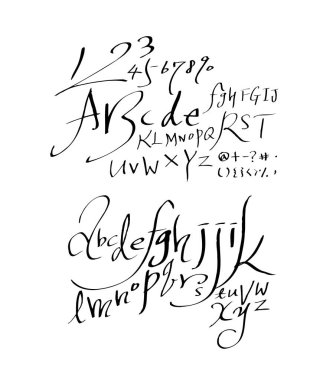 123
4567890
ABcde fghFGIJ
KLMNOPQ RST
UVWXYZ @+-?#.
abcdefghijjik
lmnopqrs tuvw
xyz